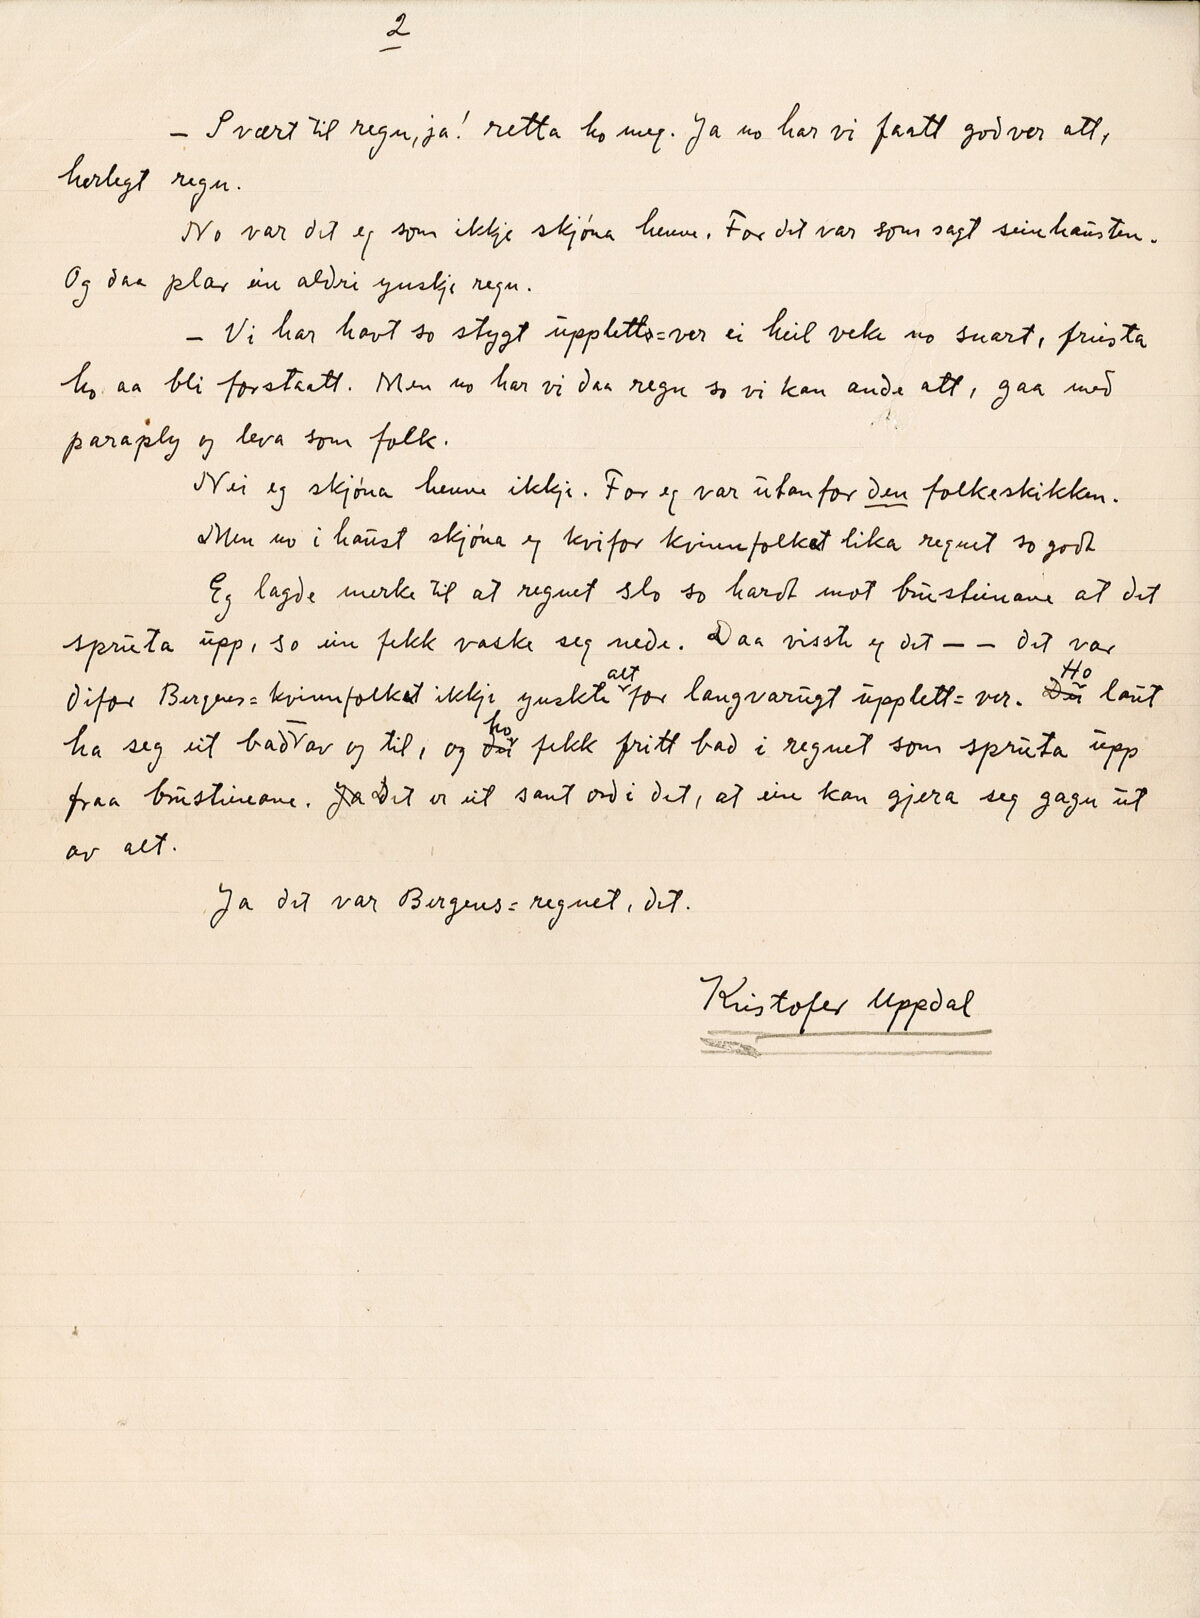 2
— Svært til regn, ja! retta ho meg. Ja no har vi faatt godver att,
herlegt regn.
No var det eg som ikkje skjøna henne. For det var som sagt seinhausten.
Og daa plar ein aldri ynskje regn.
— Vi har havt so stygt uppletts=ver ei heil veke no snart, frista
ho aa bli forstaatt. Men no har vi daa regn so vi kan ande att, gaa med
paraply og leva som folk.
Nei eg skjøna henne ikkje. For eg var utanfor den folkeskikken.
Men no i haust skjøna eg kvifor kvinnfolket lika regnet so godt
Eg lagde merke til at regnet slo so hardt mot brusteinane at det
spruta upp, so ein fekk vaske seg nede. Daa visste eg det — — det var
difor Bergens=kvinnfolket ikkje ynskte alt for langvarugt upplett=ver. Ho laut
ha seg eit bad av og til, og ho fekk fritt bad i regnet som spruta upp
fraa brusteinane. Ja Det er eit sant ord i det, at ein kan gjera seg gagn ut
av alt.
Ja det var Bergens=regnet, det.
Kristofer Uppdal